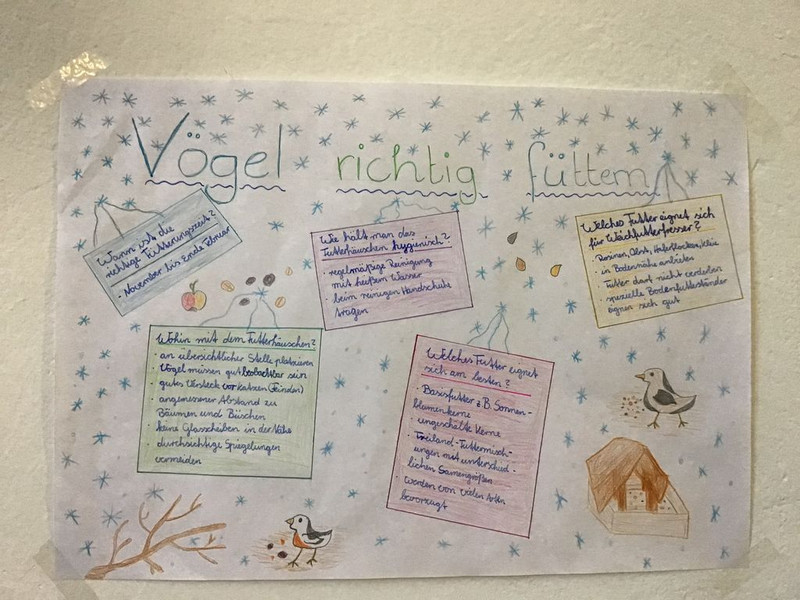 Vögel richtig füttern
Wann ist die
richtige Fütterungszeit?
• November bis Ende Februar
Wie hält man das
Futterhäuschen hygienisch?
• regelmäßige Reinigung
mit heißem Wasser
• beim reinigen Handschuhe
tragen
Welches Futter eignet sich
für Weichfutterfresser?
• Rosinen, Obst, Haferflocken, Kleie
• in Bodennähe anbieten
• Futter darf nicht verderben
• spezielle Bodenfutterständer
eignen sich gut
Wohin mit dem Futterhäuschen?
• an übersichtlicher Stelle platzieren
• Vögel müssen gut beobachtbar sein
• gutes Versteck vor Katzen (Feinden)
• angemessener Abstand zu
Bäumen und Büschen
• keine Glasscheiben in der Nähe
• durchsichtige Spiegelungen
vermeiden
Welches Futter eignet
sich am besten?
• Basisfutter z.B. Sonnen-
blumenkerne
- ungeschälte Kerne
• Freiland-Futtermisch-
ungen mit unterschied-
lichen Samengrößen
• werden von vielen Arten
bevorzugt